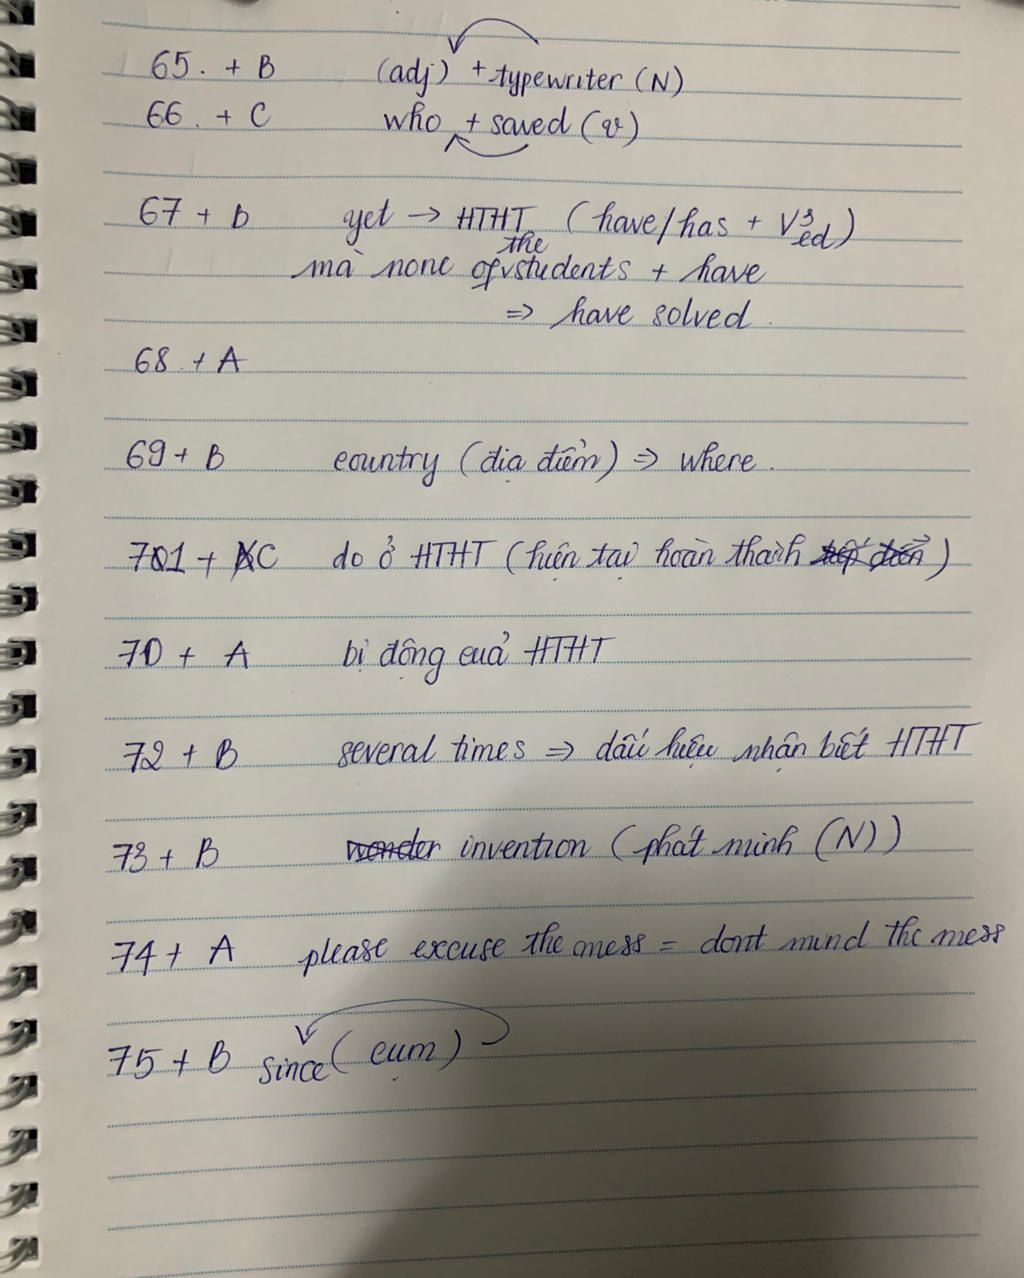 65. + B (adj) + typewriter (N)
66. + C who + saved (v)
67 + D yet → HTHT (have/has + V3 ed)
the
mà none of students + have
=> have solved.
68. + A
69 + B country (địa điểm) => where.
701 + C do ở HTHT (hiện tại hoàn thành)
70 + A bị động của HTHT
72 + B several times => dấu hiệu nhận biết HTHT
73 + B wonder invention (phát minh (N))
74 + A please excuse the mess = dont mind the mess
75 + B since (cụm)